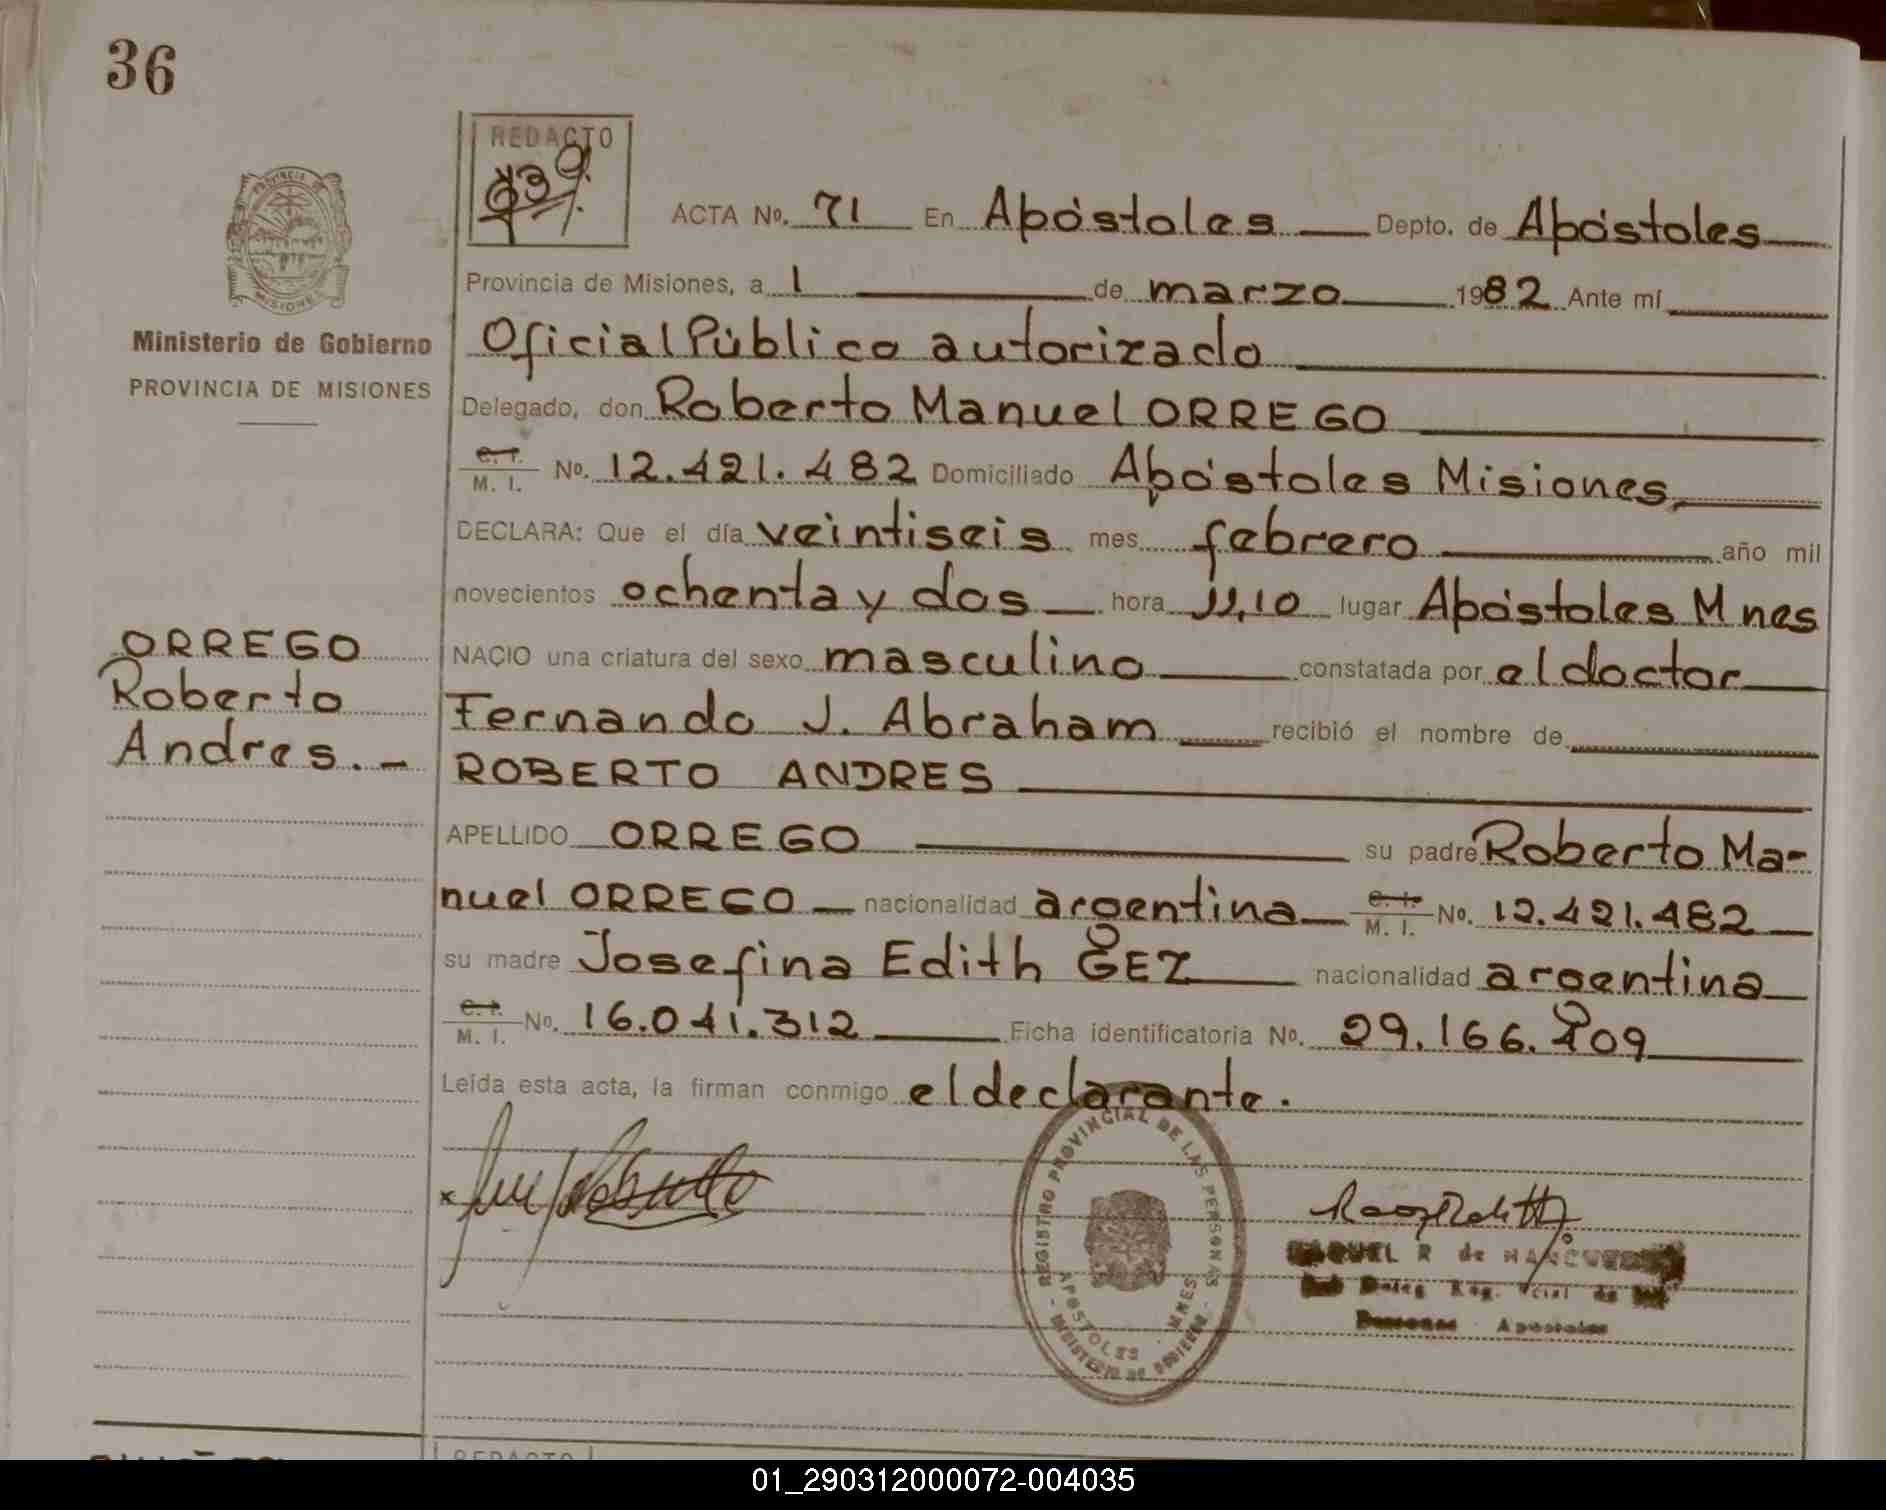 36
REDACTO
ACTA No. 71 En Apóstoles Depto. de Apóstoles
Provincia de Misiones, a 1 de marzo 1982 Ante mí
Ministerio de Gobierno
PROVINCIA DE MISIONES
Oficial Público autorizado
Delegado, don Roberto Manuel ORREGO
C. I. M. I. No. 12.421.482 Domiciliado Apóstoles Misiones,
DECLARA: Que el día veintiseis mes febrero año mil
novecientos ochenta y dos hora 11,10 lugar Apóstoles Mnes
ORREGO
Roberto
Andres.-
NACIO una criatura del sexo masculino constatada por el doctor
Fernando J. Abraham recibió el nombre de
ROBERTO ANDRES
APELLIDO ORREGO su padre Roberto Ma-
nuel ORREGO nacionalidad argentina C. I. M. I. No. 12.421.482
su madre Josefina Edith GEZ nacionalidad argentina
C. I. M. I. No. 16.041.312 Ficha identificatoria No. 29.166.209
Leída esta acta, la firman conmigo el declarante.
REGISTRO PROVINCIAL DE LAS PERSONAS
APOSTOLES - MNES
- MINISTERIO DE GOBIERNO -
RAQUEL R de
Personas Apostoles
REDACTO
01_290312000072-004035